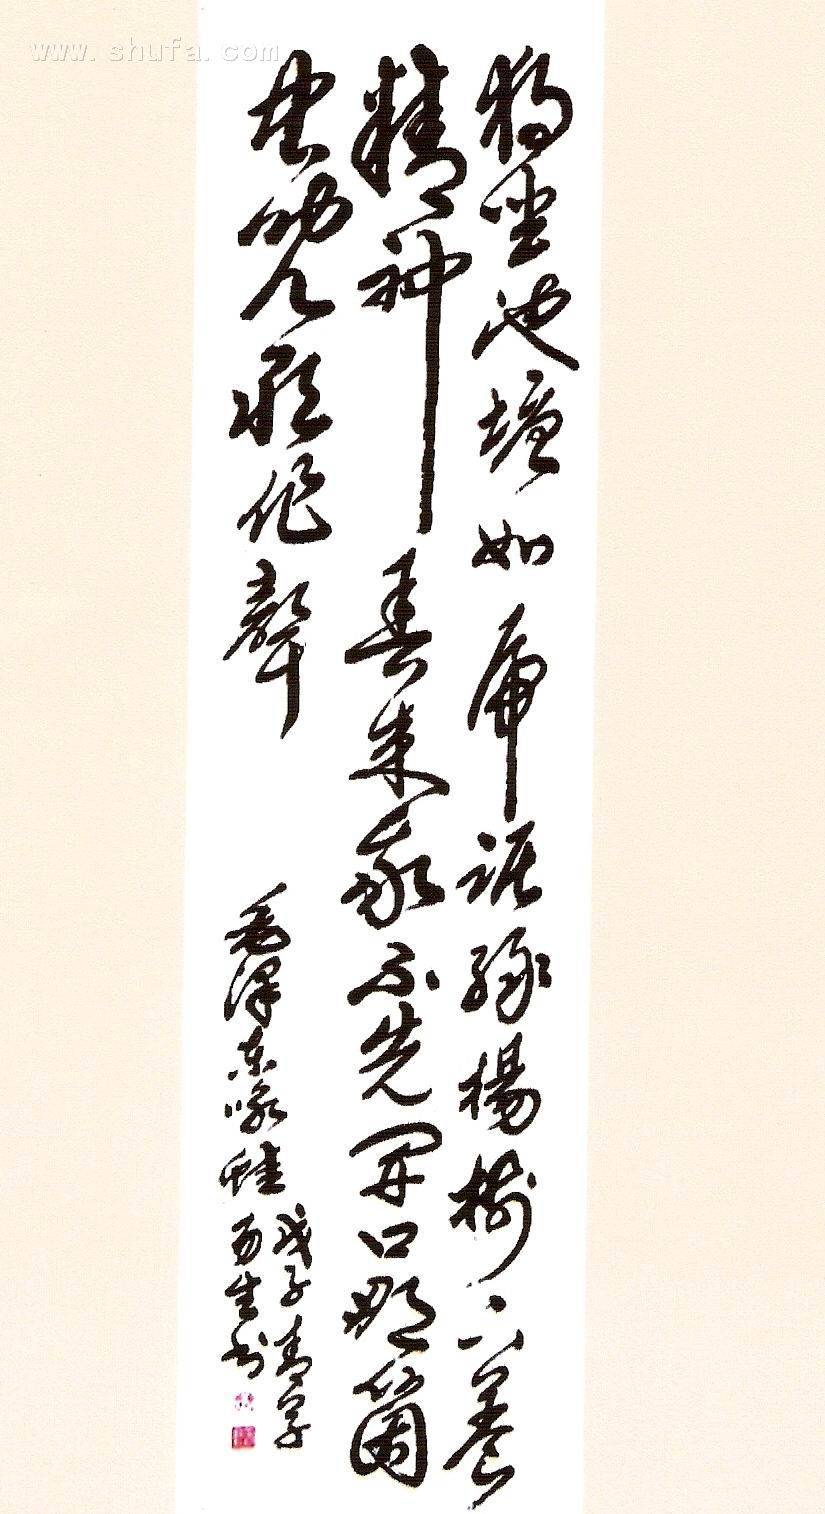 www.shufa.com
独坐池塘如虎踞绿楊樹下養
精神春来我不先开口那箇
虫児敢作聲
毛泽东咏蛙
戊子春
生书